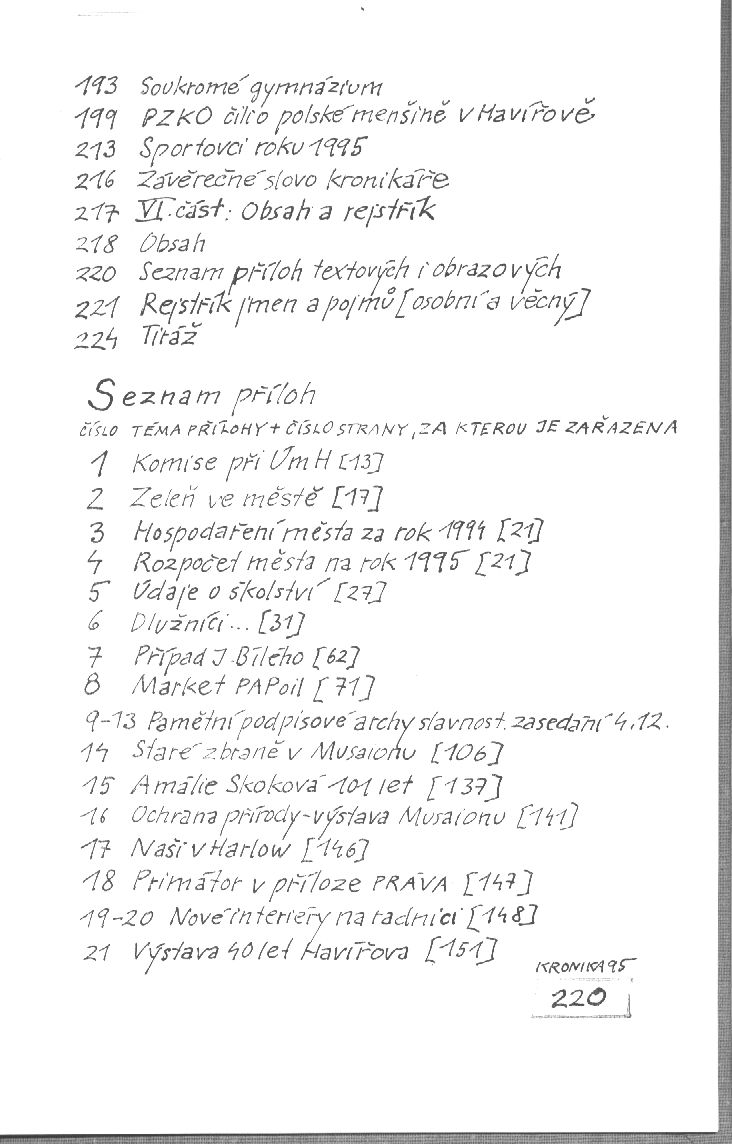 193 Soukromé gymnázium
199 PZKO čili o polské menšině v Havířově
213 Sportovci roku 1995
216 Závěrečné slovo kronikáře
217 VI. část: Obsah a rejstřík
218 Obsah
220 Seznam příloh textových i obrazových
221 Rejstřík jmen a pojmů [osobní a věcný]
224 Tiráž
Seznam příloh
ČÍSLO TÉMA PŘÍLOHY + ČÍSLO STRANY, ZA KTEROU JE ZAŘAZENA
1 Komise při ÚmH [13]
2 Zeleň ve městě [17]
3 Hospodaření města za rok 1994 [21]
4 Rozpočet města na rok 1995 [21]
5 Údaje o školství [27]
6 Dlužníci... [31]
7 Případ J. Bílého [62]
8 Market PAPoil [71]
9-13 Pamětní podpisové archy slavnost. zasedání 4.12.
14 Staré zbraně v Musaionu [106]
15 Amálie Skoková 101 let [137]
16 Ochrana přírody-výstava Musaionu [141]
17 Naši v Harlow [146]
18 Primátor v příloze PRÁVA [147]
19-20 Nové interiéry na radnici [148]
21 Výstava 40 let Havířova [151]
KRONIKA 95
220